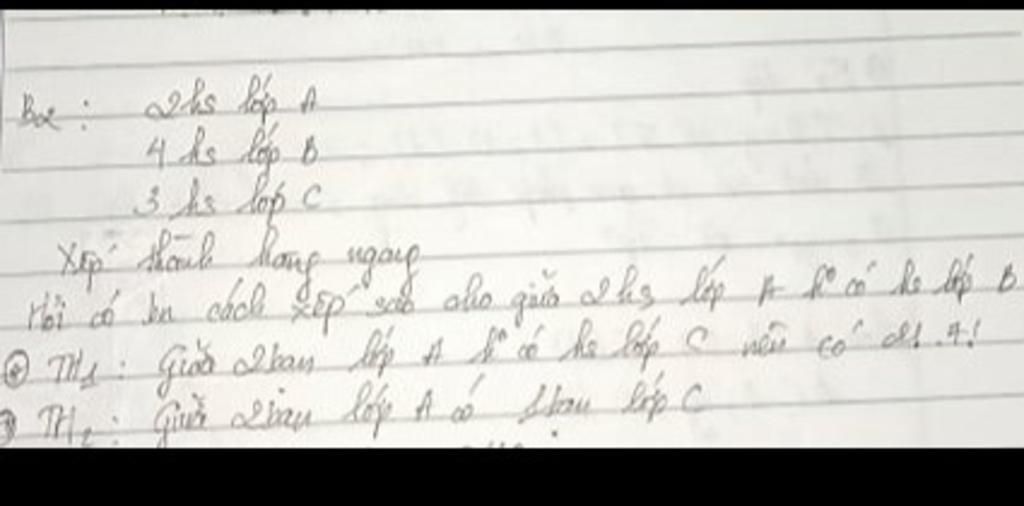 B2: 2hs lớp A
4 hs lớp B
3 hs lớp C
Xếp thành hàng ngang
Hỏi có bn cách xếp sao cho giữa 2hs lớp A k° có hs lớp B
TH1: Giữa 2bạn lớp A k° có hs lớp C nên có 2!.
TH2: Giữa 2bạn lớp A có 1bạn lớp C